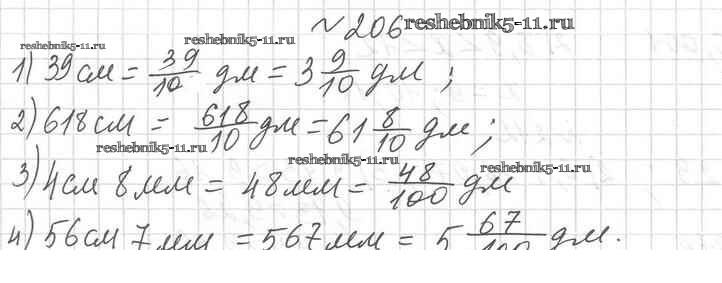 № 206 reshebnik5-11.ru
reshebnik5-11.ru reshebnik5-11.ru
1) 39 см = 39/10 дм = 3 9/10 дм ;
2) 618 см = 618/10 дм = 61 8/10 дм ;
reshebnik5-11.ru reshebnik5-11.ru reshebnik5-11.ru
3) 4 см 8 мм = 48 мм = 48/100 дм
4) 56 см 7 мм = 567 мм = 5 67/100 дм.